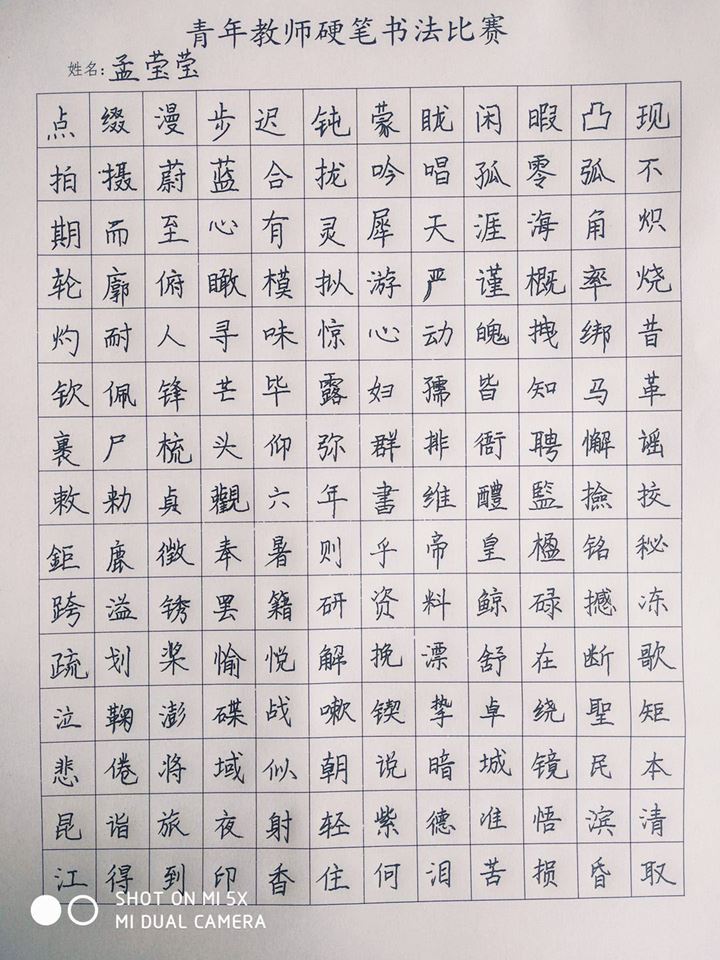 青年教师硬笔书法比赛
姓名:孟莹莹
点缀漫步迟钝蒙眬闲暇凸现
拍摄蔚蓝合拢吟唱孤零弧不
期而至心有灵犀天涯海角炽
轮廓俯瞰模拟游严谨概率烧
灼耐人寻味惊心动魄拽绑昔
钦佩锋芒毕露妇孺皆知马革
裹尸梳头仰弥群排衙聘懈谣
敕勑貞觀六年書维醴監撿挍
鉅鹿徵奉暑则乎帝皇楹铭秘
跨溢锈罢籍研资料鲸碌撼冻
疏划桨愉悦解挽漂舒在断歌
泣鞠澎碟战嗽锲挚卓绕聖矩
悲倦将域似朝说暗城镜民本
昆诣旅夜射轻紫德准悟滨清
江得到印香住何泪苦损昏取
SHOT ON MI 5X
MI DUAL CAMERA